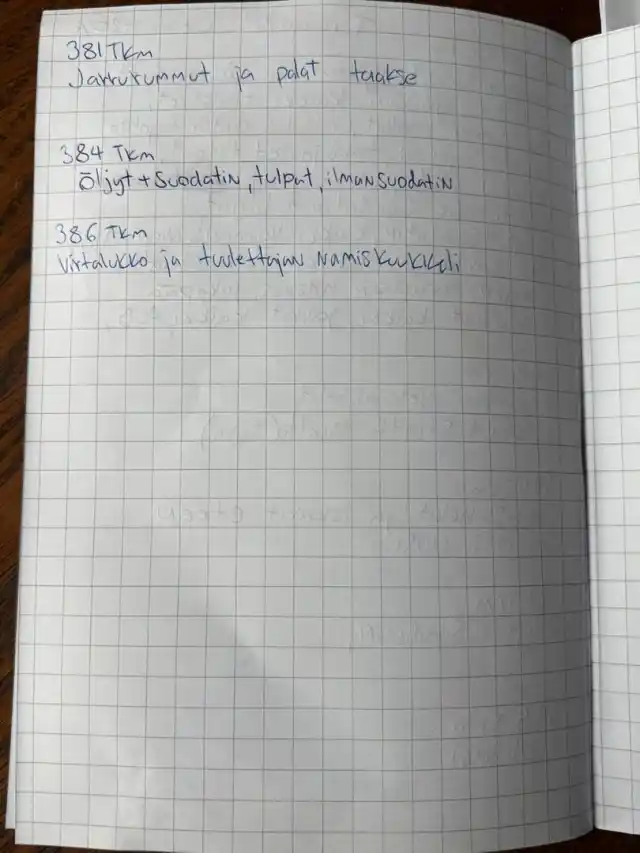 381 TKm
Jarrurummut ja palat taakse
384 TKm
Öljyt + Suodatin, tulpat, ilmansuodatin
386 TKm
Virtalukko ja tuulettajan namiskuukkeli